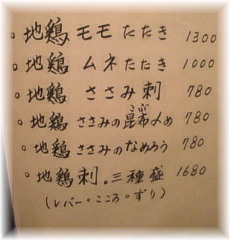 。地鶏モモたたき 1300
。地鶏ムネたたき 1000
。地鶏ささみ刺 780
。地鶏ささみの昆布〆め 780
こぶ
。地鶏ささみのなめろう 780
。地鶏刺。三種盛 1680
(レバー・こころ・ずり)